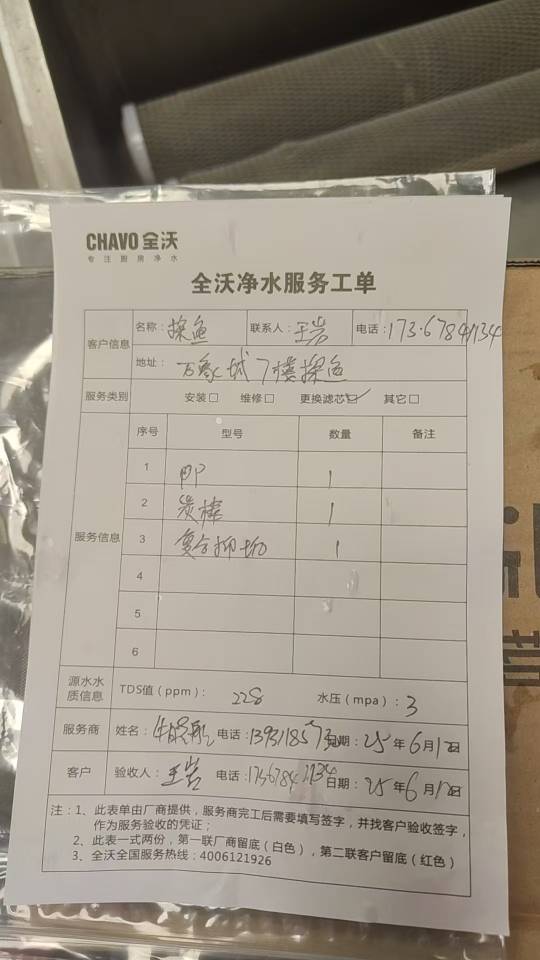 CHAVO 全沃
专注厨房净水
全沃净水服务工单
客户信息 名称：探鱼 联系人：王岩 电话：173·67841134
地址：万象城7楼探鱼
服务类别 安装□ 维修□ 更换滤芯☑ 其它□
服务信息 序号 型号 数量 备注
1 PP 1
2 炭棒 1
3 复合抑垢 1
4
5
6
源水水质信息 TDS值（ppm）：228 水压（mpa）：3
服务商 姓名： 电话： 日期：25年6月12日
客户 验收人：王岩 电话：17367841134 日期：25年6月12日
注：1、此表单由厂商提供，服务商完工后需要填写签字，并找客户验收签字，
作为服务验收的凭证；
2、此表一式两份，第一联厂商留底（白色），第二联客户留底（红色）
3、全沃全国服务热线：4006121926